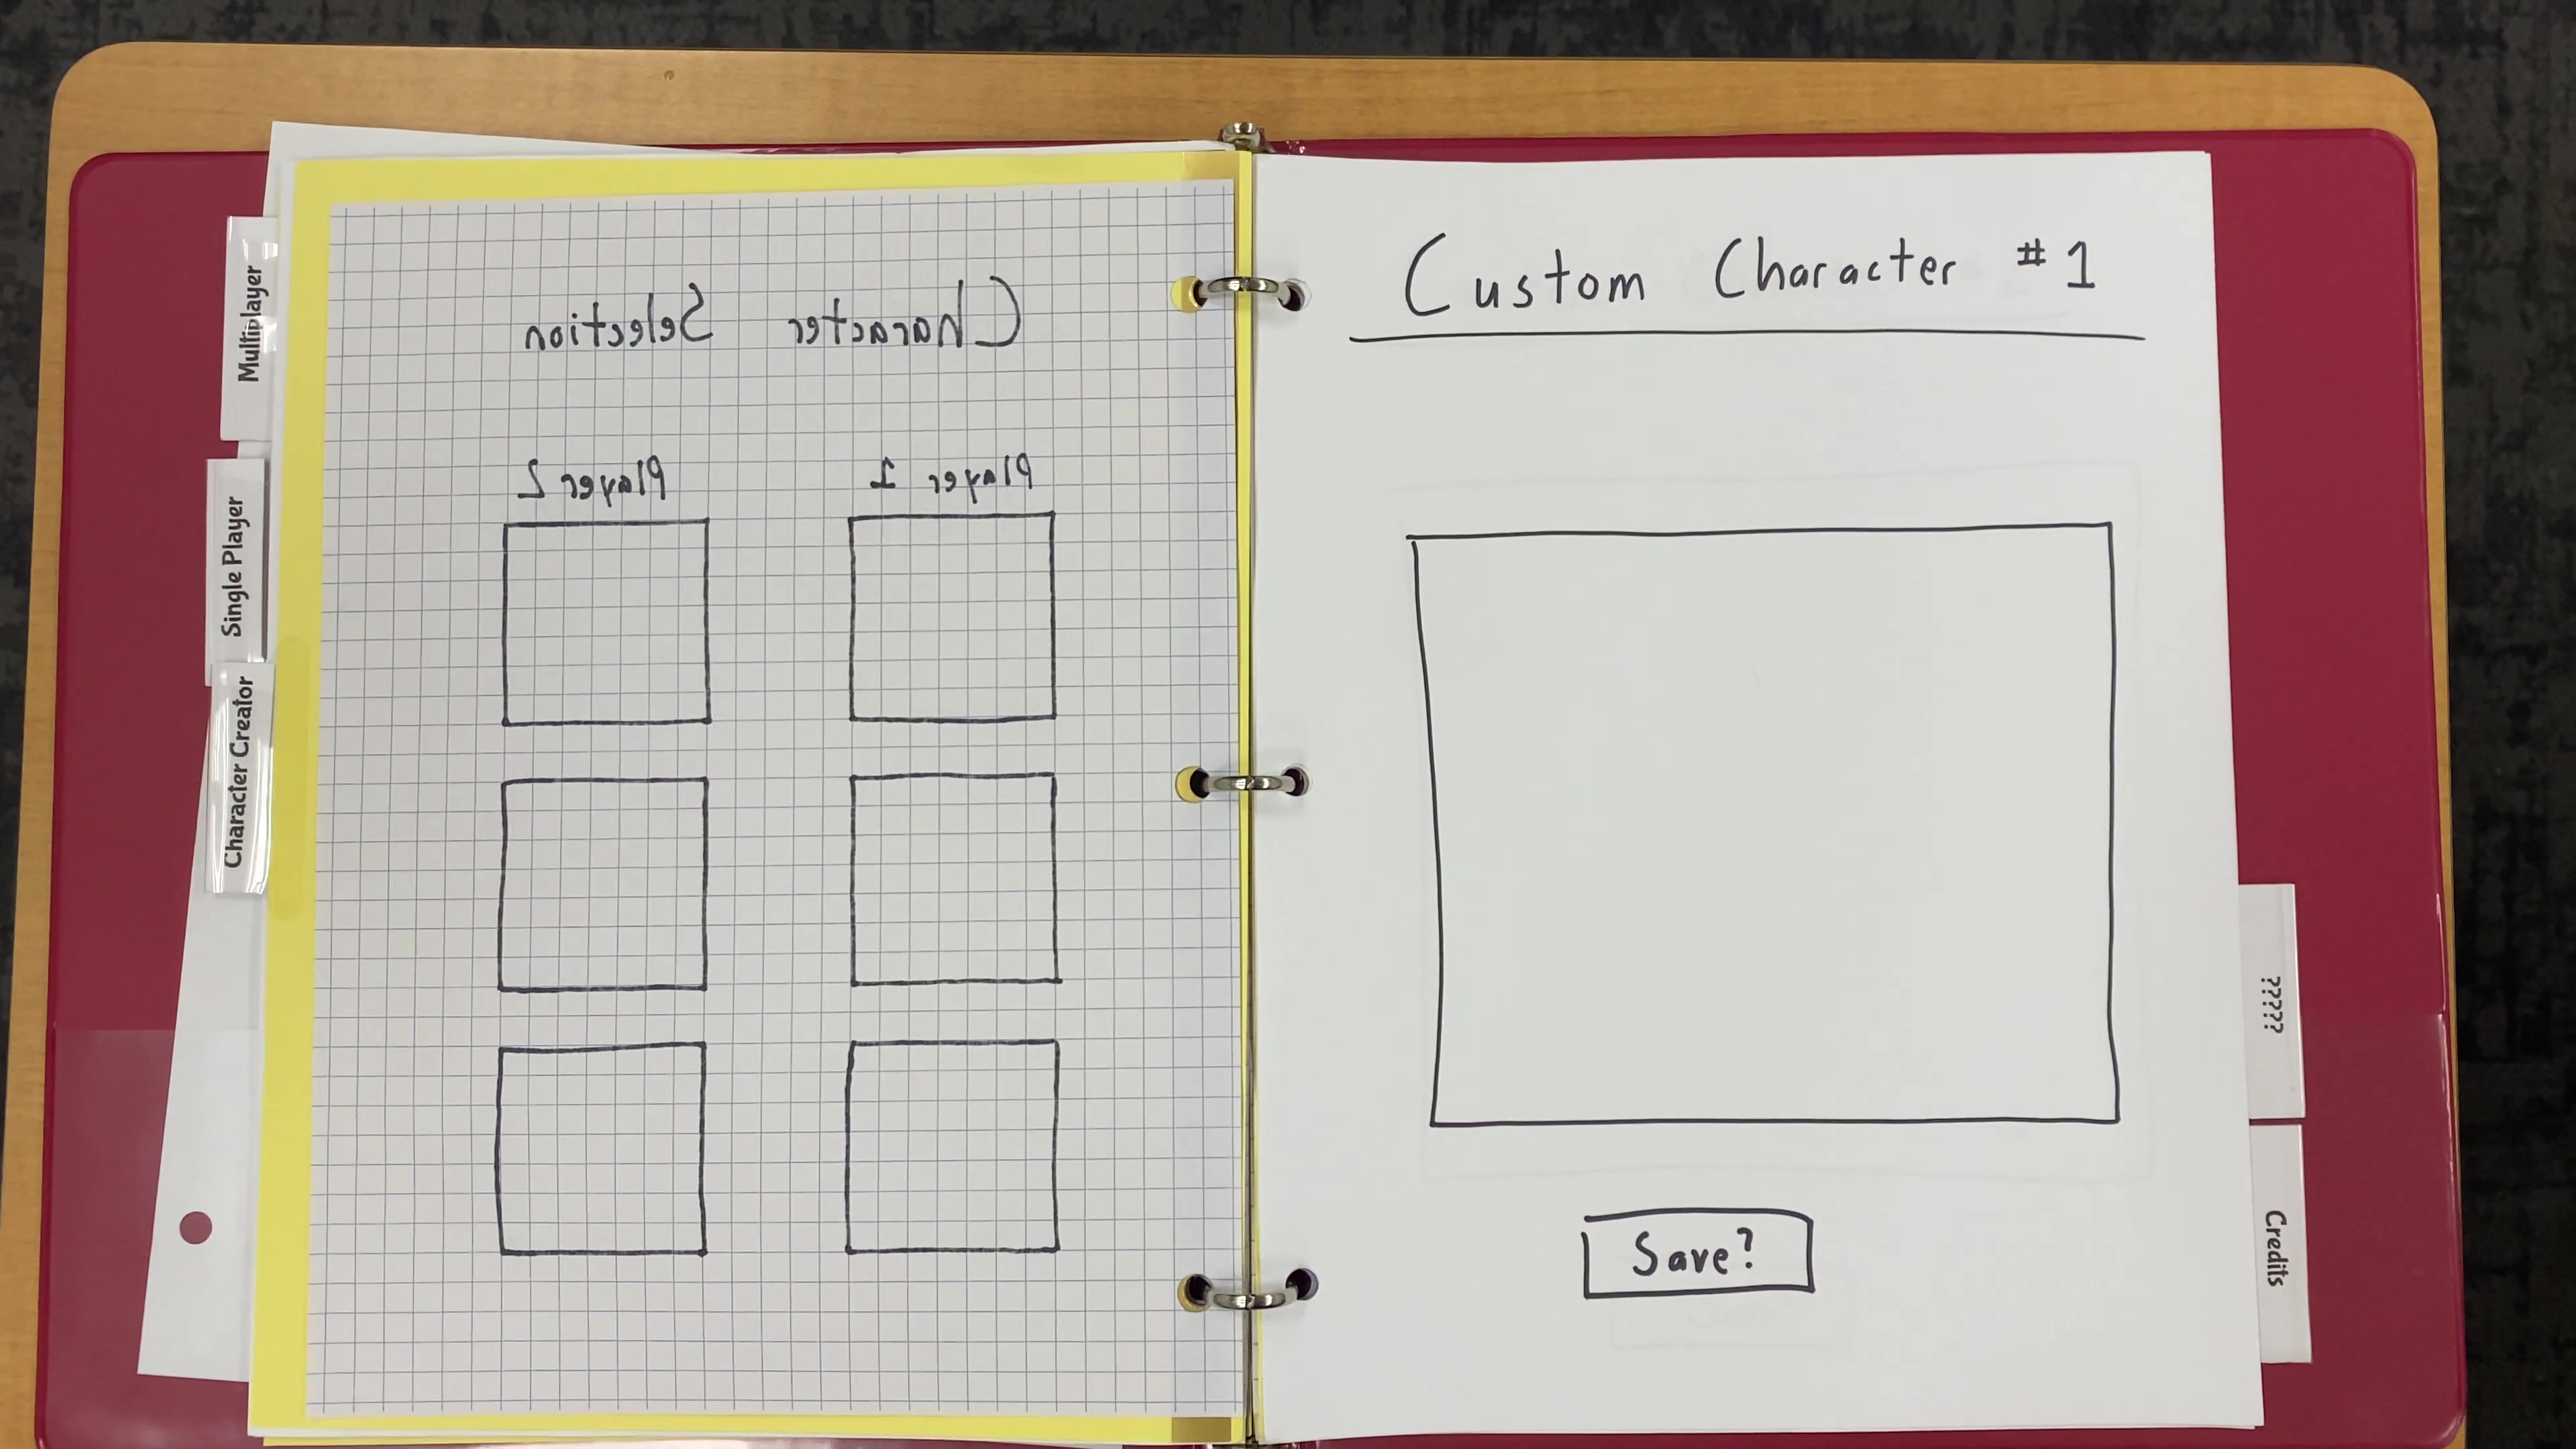 Multiplayer
Single Player
Character Creator
Character Selection
Player 1
Player 2
Custom Character #1
Save?
?????
Credits